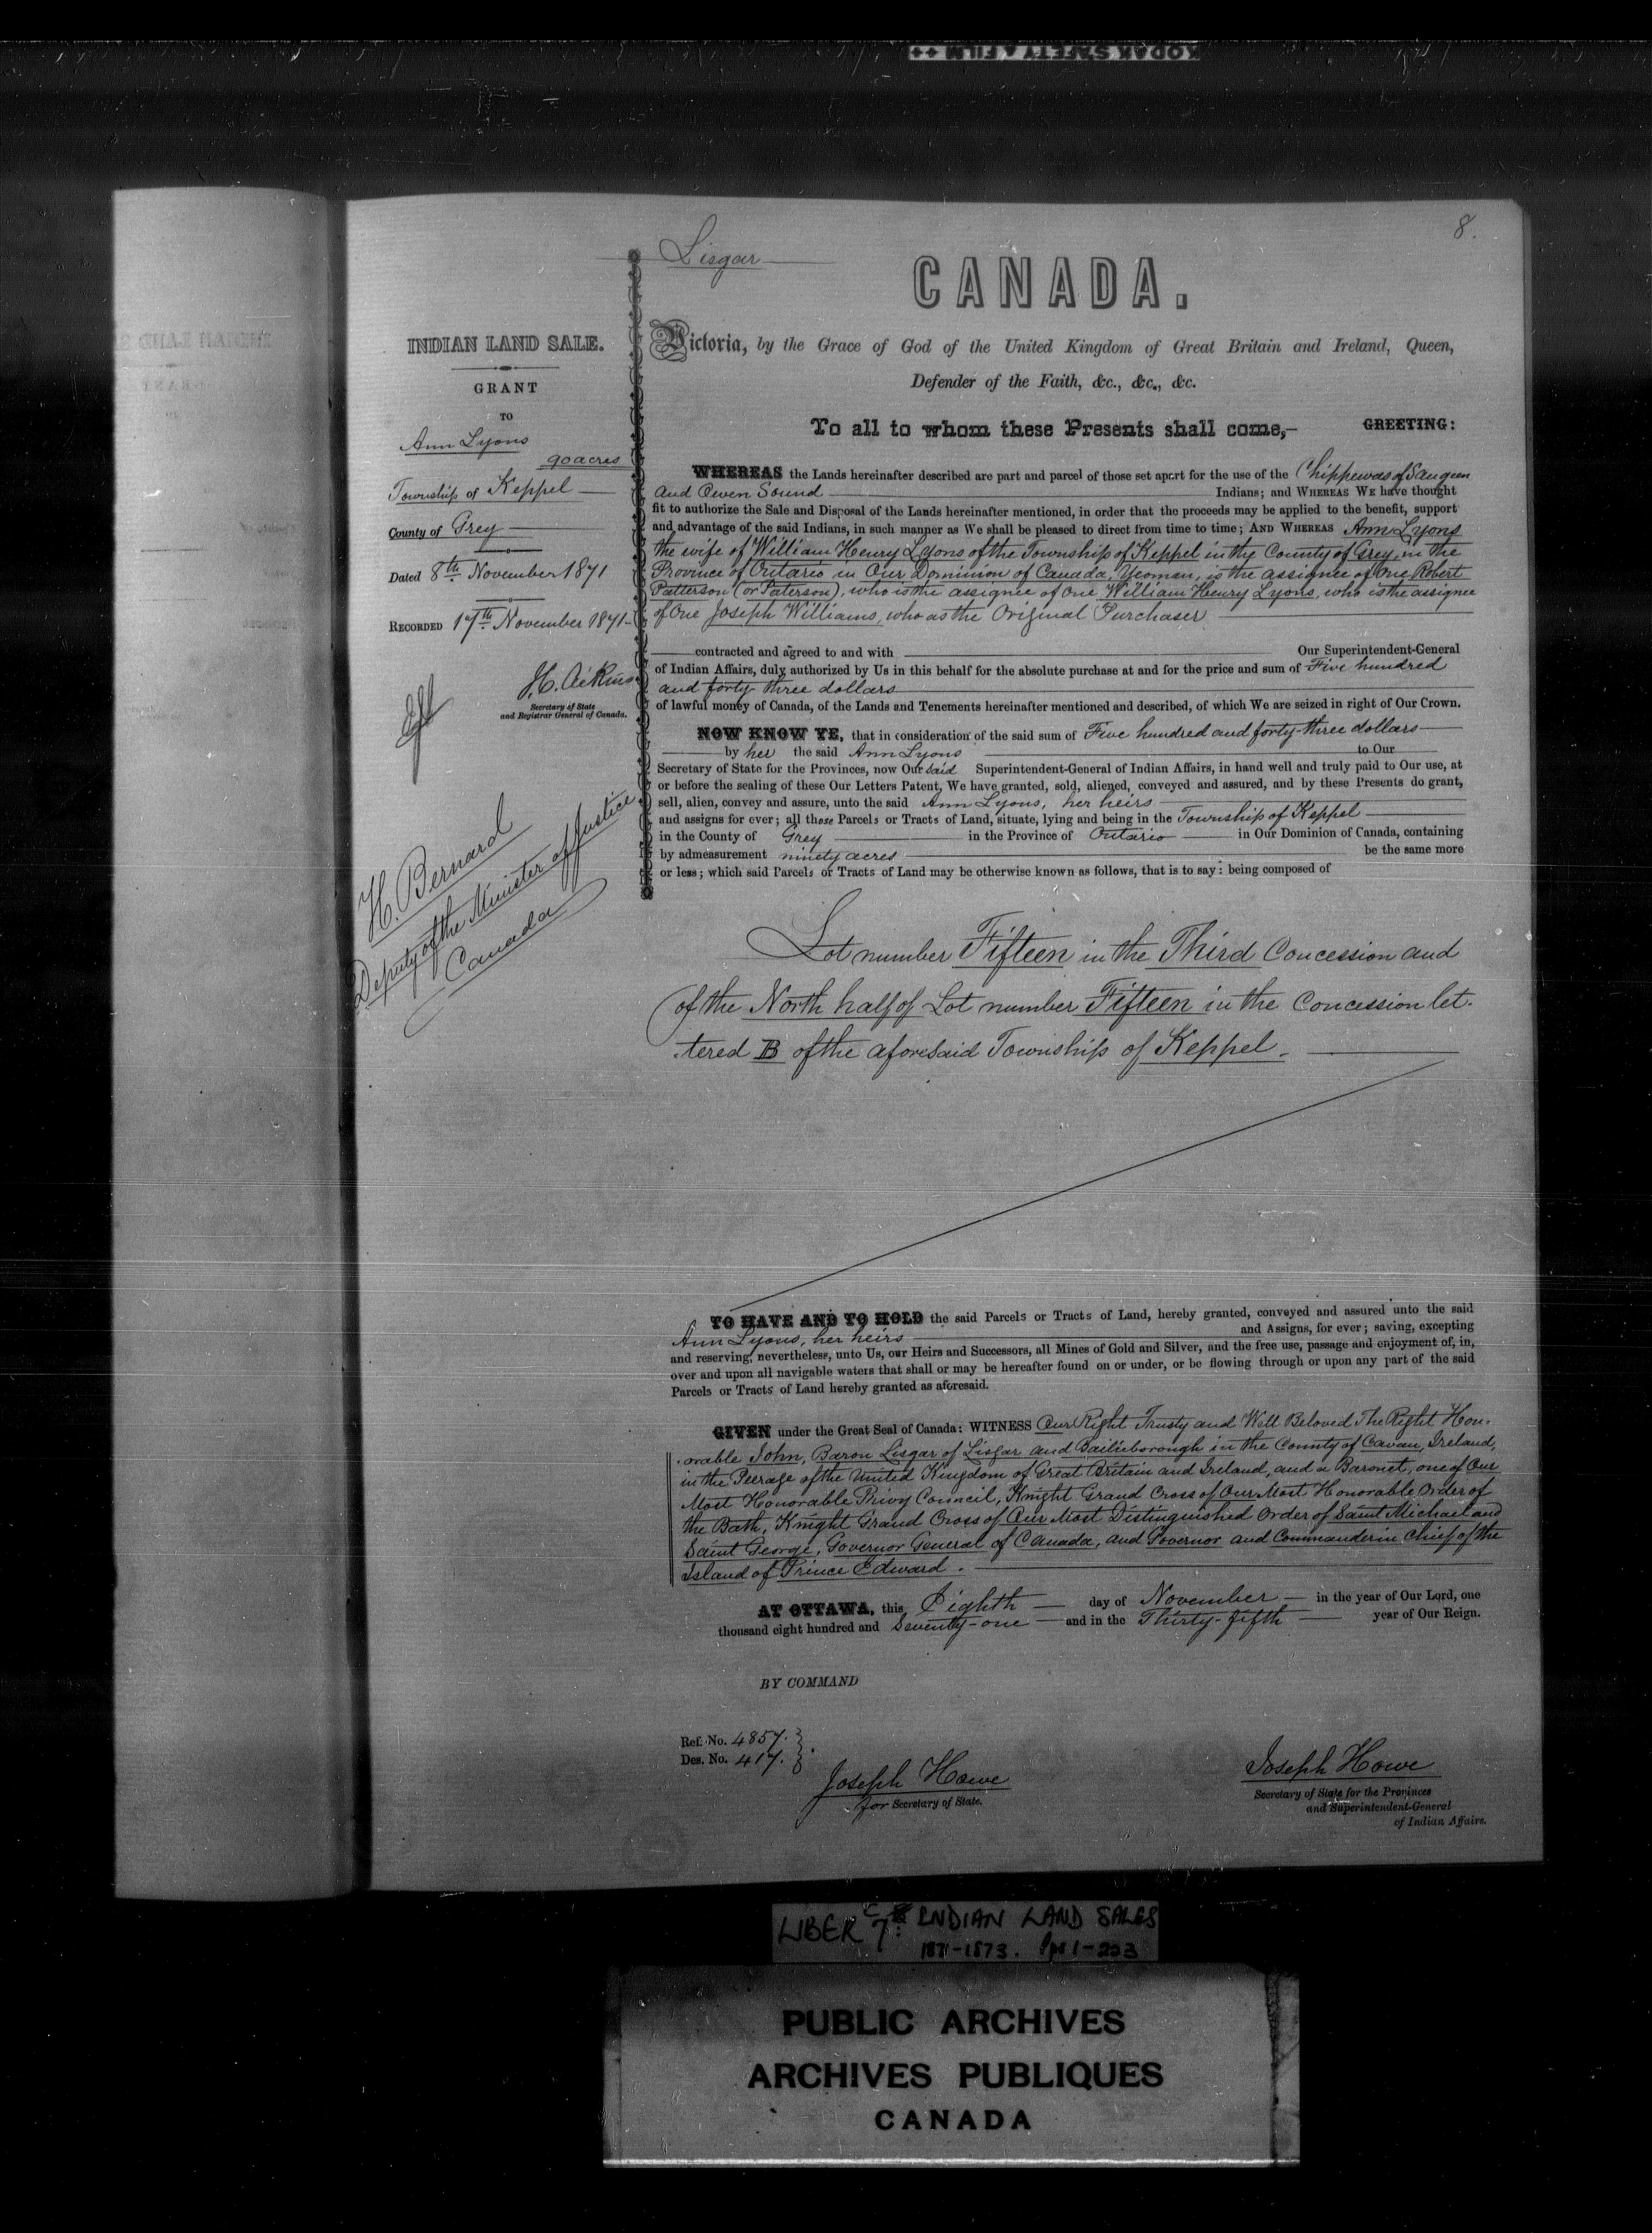 KODAK SAFETY FILM ++
8.
Lisgar
CANADA.
INDIAN LAND SALE.
GRANT
TO
Ann Lyons
90 acres
Township of Keppel
County of Grey
Dated 8th November 1871
RECORDED 17th November 1871
J.C. Aikins
Secretary of State
and Registrar General of Canada.
H. Bernard
Deputy of the Minister of Justice
Canada
Victoria, by the Grace of God of the United Kingdom of Great Britain and Ireland, Queen,
Defender of the Faith, &c., &c., &c.
To all to whom these Presents shall come,— GREETING:
WHEREAS the Lands hereinafter described are part and parcel of those set apart for the use of the Chippewas of Saugeen
and Owen Sound Indians; and WHEREAS WE have thought
fit to authorize the Sale and Disposal of the Lands hereinafter mentioned, in order that the proceeds may be applied to the benefit, support
and advantage of the said Indians, in such manner as We shall be pleased to direct from time to time; AND WHEREAS Ann Lyons
the wife of William Henry Lyons of the Township of Keppel in the County of Grey, in the
Province of Ontario in Our Dominion of Canada, Yeoman, is the assignee of one Robert
Patterson (or Paterson), who is the assignee of one William Henry Lyons, who is the assignee
of One Joseph Williams, who as the Original Purchaser
contracted and agreed to and with Our Superintendent-General
of Indian Affairs, duly authorized by Us in this behalf for the absolute purchase at and for the price and sum of Five hundred
and forty three dollars
of lawful money of Canada, of the Lands and Tenements hereinafter mentioned and described, of which We are seized in right of Our Crown.
NOW KNOW YE, that in consideration of the said sum of Five hundred and forty-three dollars
by her the said Ann Lyons to Our
Secretary of State for the Provinces, now Our said Superintendent-General of Indian Affairs, in hand well and truly paid to Our use, at
or before the sealing of these Our Letters Patent, We have granted, sold, aliened, conveyed and assured, and by these Presents do grant,
sell, alien, convey and assure, unto the said Ann Lyons, her heirs
and assigns for ever; all those Parcels or Tracts of Land, situate, lying and being in the Township of Keppel
in the County of Grey in the Province of Ontario in Our Dominion of Canada, containing
by admeasurement ninety acres be the same more
or less; which said Parcels or Tracts of Land may be otherwise known as follows, that is to say: being composed of
Lot number Fifteen in the Third Concession and
of the North half of Lot number Fifteen in the Concession let-
tered B of the aforesaid Township of Keppel.
TO HAVE AND TO HOLD the said Parcels or Tracts of Land, hereby granted, conveyed and assured unto the said
Ann Lyons, her heirs and Assigns, for ever; saving, excepting
and reserving, nevertheless, unto Us, our Heirs and Successors, all Mines of Gold and Silver, and the free use, passage and enjoyment of, in,
over and upon all navigable waters that shall or may be hereafter found on or under, or be flowing through or upon any part of the said
Parcels or Tracts of Land hereby granted as aforesaid.
GIVEN under the Great Seal of Canada: WITNESS Our Right Trusty and Well Beloved The Right Hon-
orable John, Baron Lisgar of Lisgar and Bailieborough in the County of Cavan, Ireland,
in the Peerage of the United Kingdom of Great Britain and Ireland, and a Baronet, one of Our
Most Honorable Privy Council, Knight Grand Cross of Our Most Honorable Order of
the Bath, Knight Grand Cross of Our Most Distinguished Order of Saint Michael and
Saint George, Governor General of Canada, and Governor and Commander in Chief of the
Island of Prince Edward.
AT OTTAWA, this Eighth day of November in the year of Our Lord, one
thousand eight hundred and Seventy-one and in the Thirty-fifth year of Our Reign.
BY COMMAND
Ref. No. 4857.
Des. No. 417.
Joseph Howe
for Secretary of State.
Joseph Howe
Secretary of State for the Provinces
and Superintendent-General
of Indian Affairs.
LIBER 7. INDIAN LAND SALES
1871-1873. Pp 1-203
PUBLIC ARCHIVES
ARCHIVES PUBLIQUES
CANADA